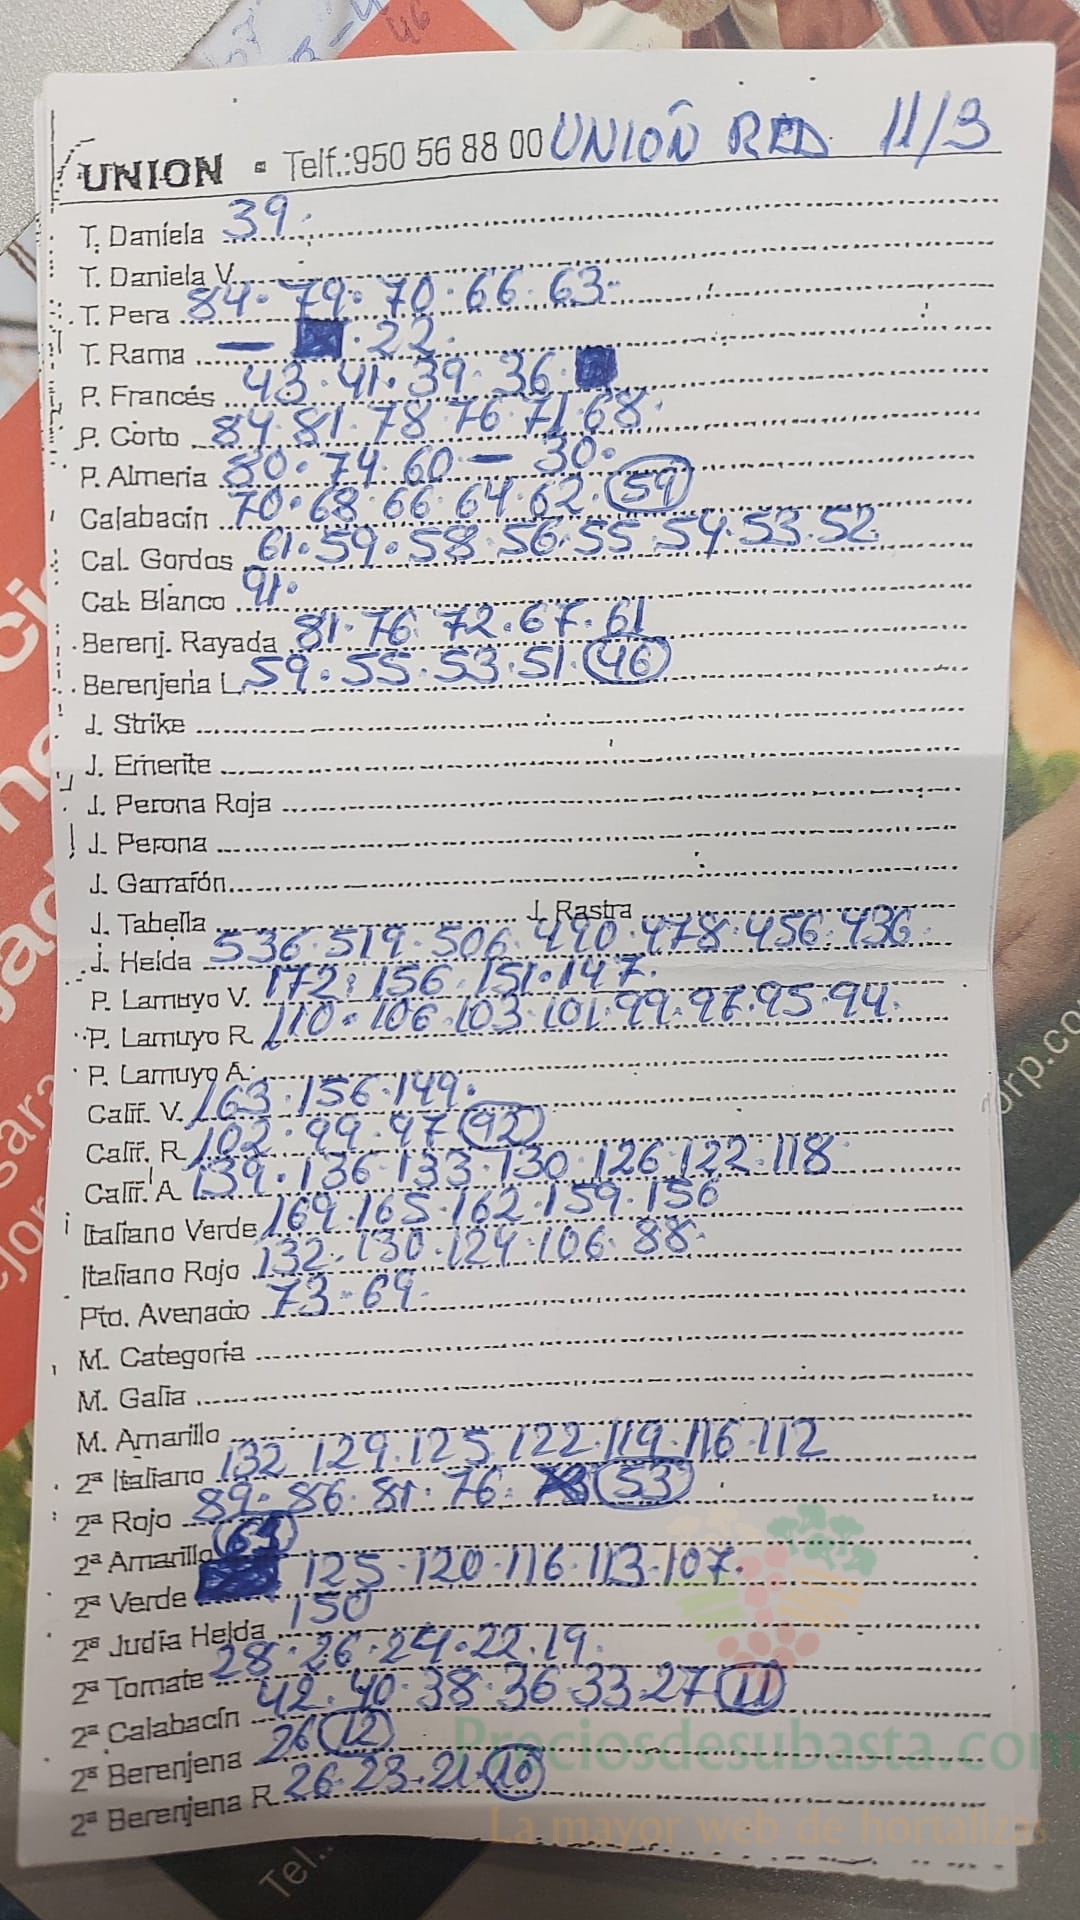 UNION - Telf.:950 56 88 00 UNIOÑ RED 11/3
T. Daniela 39.
T. Daniela V.
T. Pera 84. 79. 70. 66. 63.
T. Rama — . 22.
P. Francés 43. 41. 39. 36.
P. Corto 84. 81. 78. 76. 71. 68.
P. Almeria 80. 74. 60 — 30.
Calabacín 70. 68. 66. 64. 62. 59
Cal. Gordos 61. 59. 58. 56. 55. 54. 53. 52
Cal. Blanco 91.
Berenj. Rayada 81. 76. 72. 67. 61
Berenjena L. 59. 55. 53. 51. 46
J. Strike
J. Emerite
J. Perona Roja
J. Perona
J. Garrafón
J. Tabella J. Rastra
J. Helda 536. 519. 506. 490. 478. 456. 436.
P. Lamuyo V. 172. 156. 151. 147.
P. Lamuyo R. 110. 106. 103. 101. 99. 97. 95. 94.
P. Lamuyo A.
Calif. V. 163. 156. 149.
Calif. R. 102. 99. 97 92
Calif. A. 139. 136. 133. 130. 126. 122. 118
Italiano Verde 169. 165. 162. 159. 156
Italiano Rojo 132. 130. 124. 106. 88.
Pto. Avenado 73. 69.
M. Categoria
M. Galia
M. Amarillo
2ª Italiano 132 129. 125. 122. 119. 116. 112
2ª Rojo 89. 86. 81. 76. 53
2ª Amarillo 65
2ª Verde 125. 120. 116. 113. 107.
2ª Judía Helda 150
2ª Tomate 28. 26. 24. 22. 19.
2ª Calabacín 42. 40. 38. 36 33. 27 11
2ª Berenjena 26 12
2ª Berenjena R. 26. 23. 21. 10
Preciosdesubasta.com
La mayor web de hortalizas
Tel..
orp.co